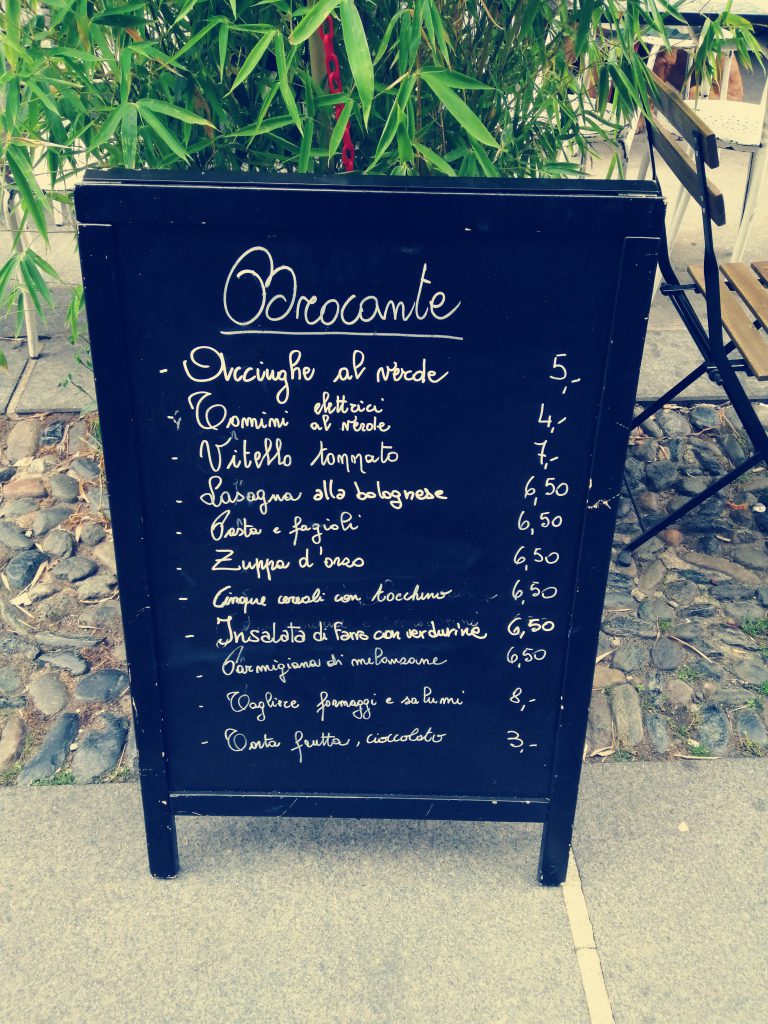 Brocante
- Acciughe al verde 5,-
- Tomini elettrici al verde 4,-
- Vitello tonnato 7,-
- Lasagna alla bolognese 6,50
- Pasta e fagioli 6,50
- Zuppa d'orzo 6,50
- Cinque cereali con tacchino 6,50
- Insalata di farro con verdurine 6,50
- Parmigiana di melanzane 6,50
- Tagliere formaggi e salumi 8,-
- Torta frutta, cioccolato 3,-